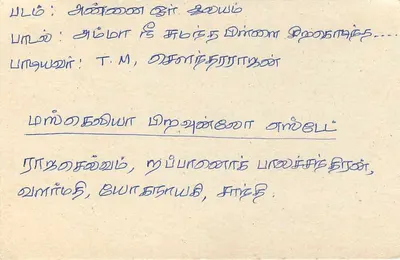 படம் : அன்னை ஓர் ஆலயம்
பாடல் : அம்மா நீ சுமந்த பிள்ளை சிறகொடிந்த....
பாடியவர் : T. M, சௌந்தரராஜன்
மஸ்கெலியா பிறவுன்லோ எஸ்டேட்
ராஜசெல்வம், றப்பானொத் பாலச்சந்திரன்,
வளர்மதி, யோகநாயகி, சாந்தி.